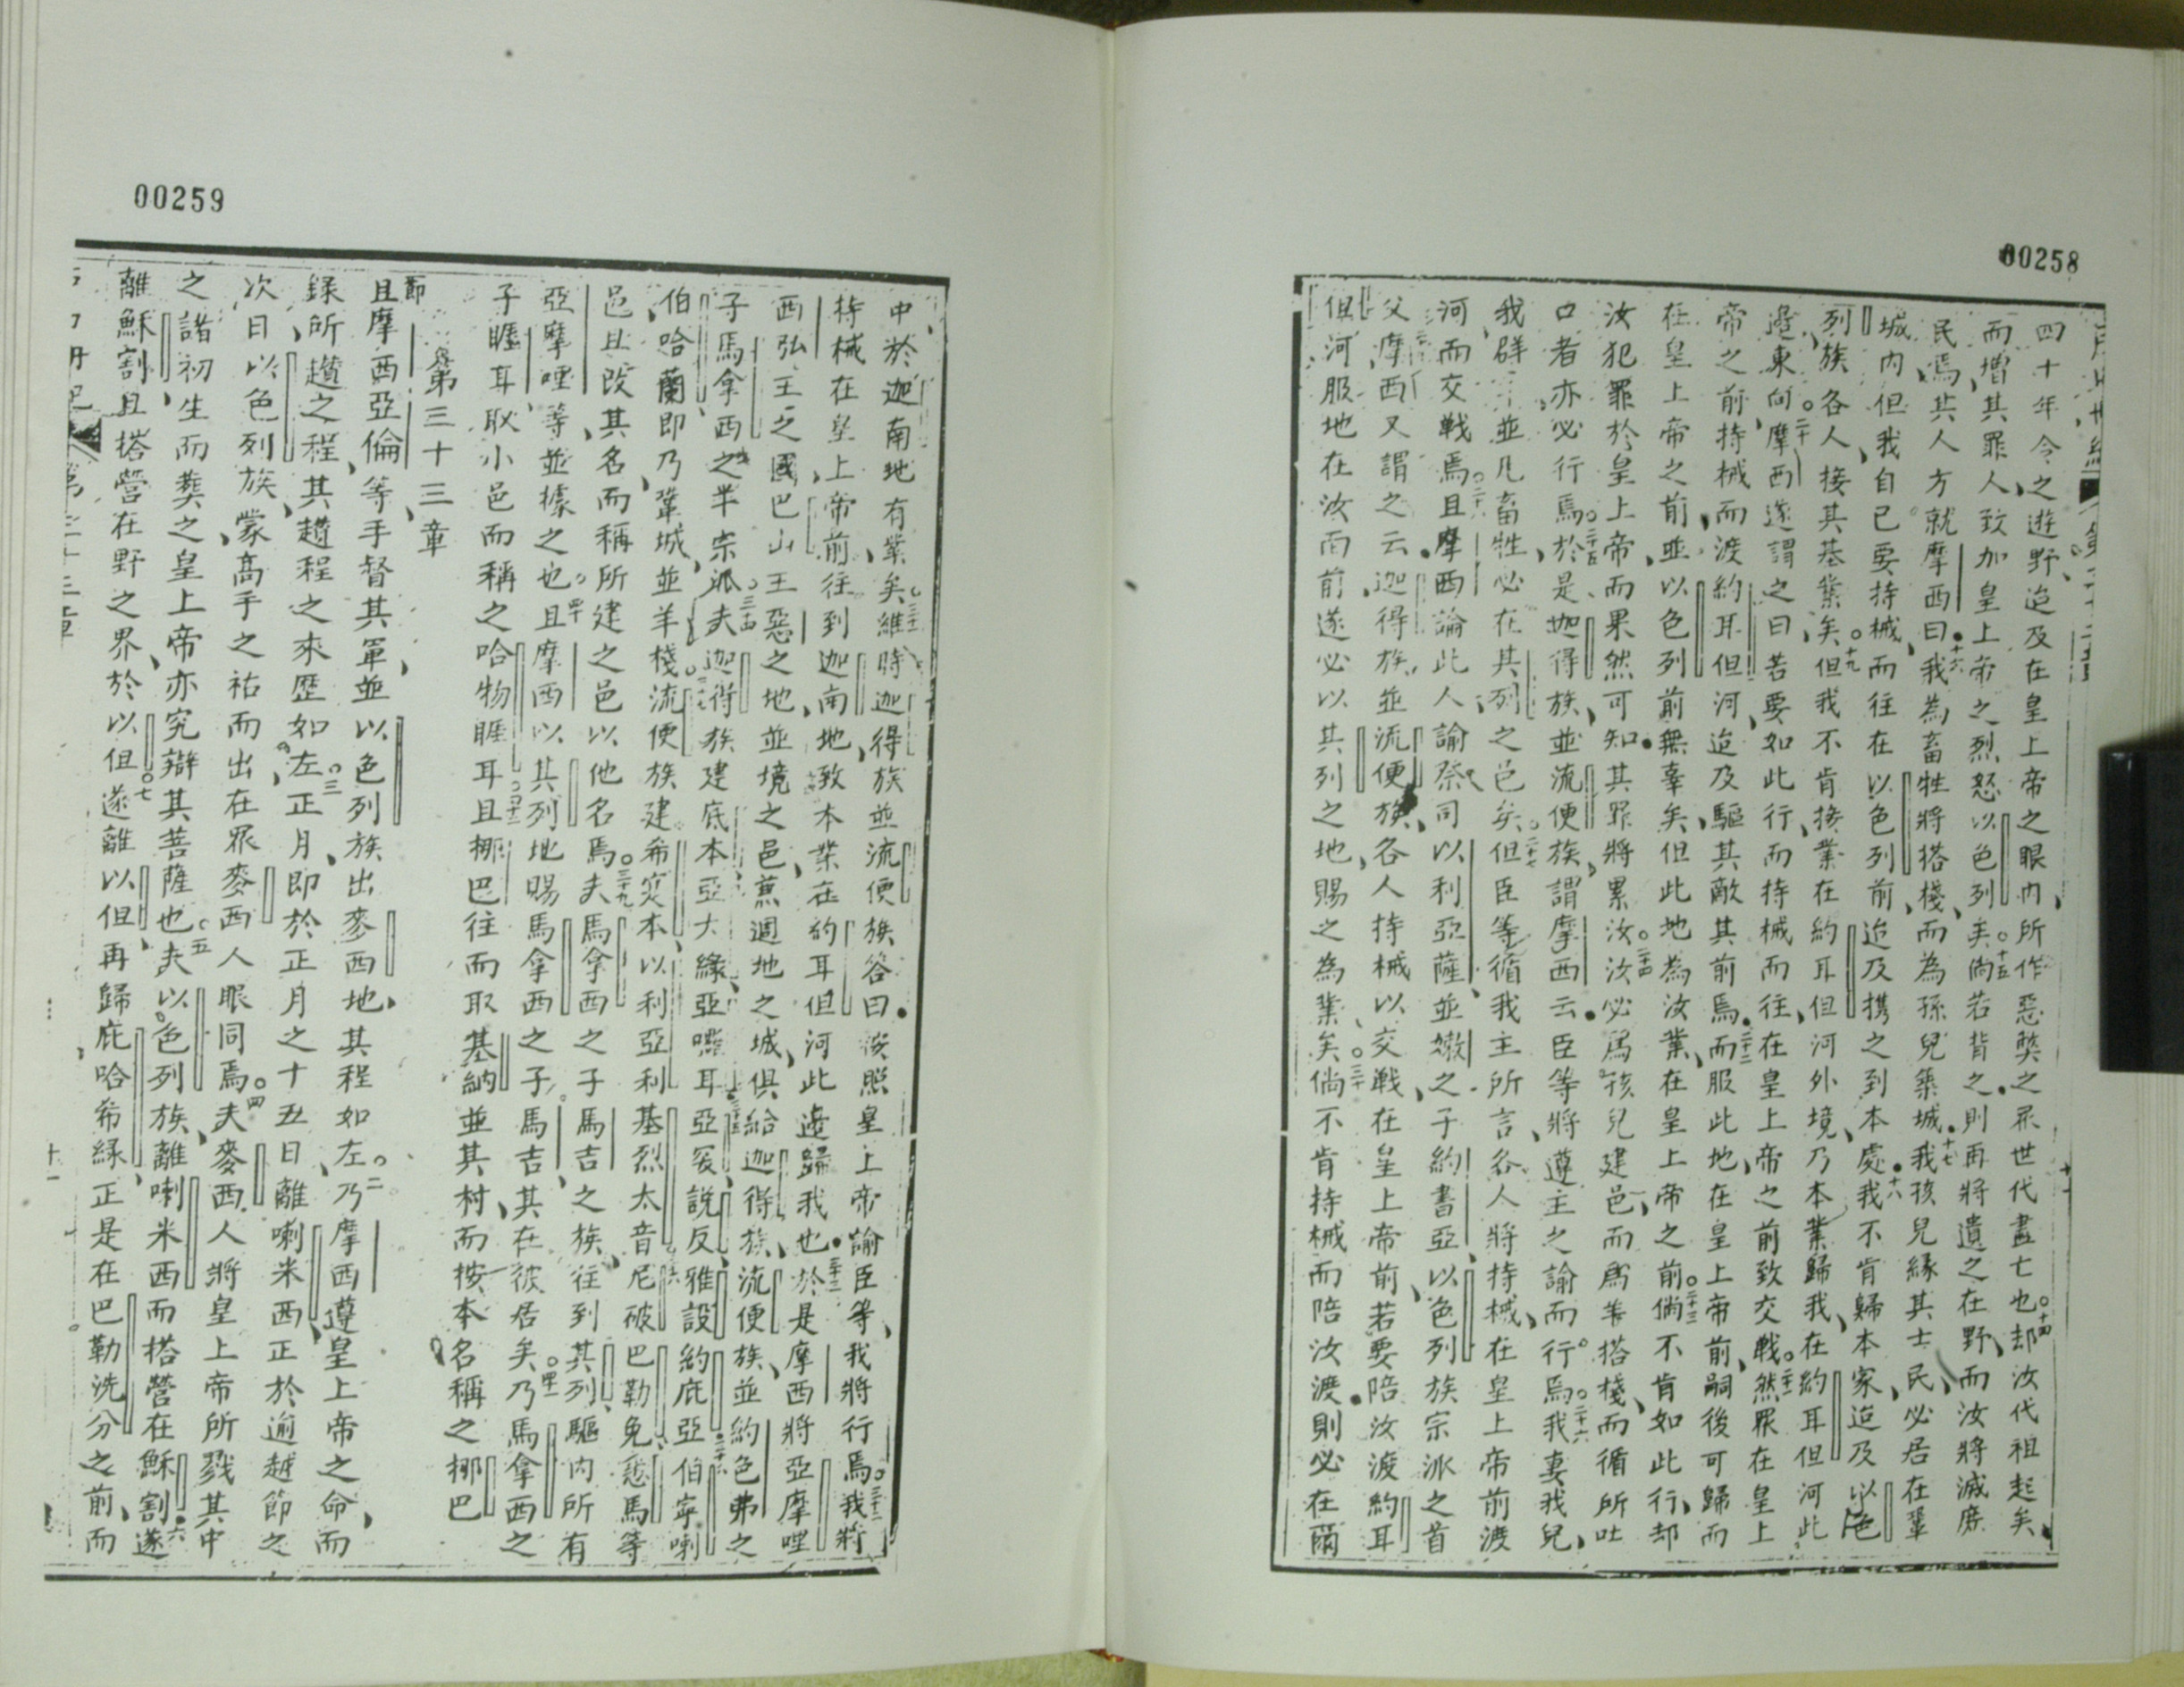 00258
四十年令之遊野迨及在皇上帝之眼內所作惡弊之眾世代盡亡也○十四却汝代祖起矣
而增其罪人致加皇上帝之烈怒以色列矣○十五倘若背之則再將遺之在野而汝將滅庶
民焉其人方就摩西曰十六我為畜牲將搭棧而為孫兒築城十七我孩兒緣其士民必居在鞏
城內但我自己要持械而往在以色列前迨及携之到本處十八我不肯歸本家迨及以色
列族各人接其基業矣○十九但我不肯接業在約耳但河外境乃本業歸我在約耳但河此
邉東向○二十摩西遂謂之曰若要如此行而持械而往在皇上帝之前致交戰○二十一然眾在皇上
帝之前持械而渡約耳但河迨及驅其敵其前焉二十二而服此地在皇上帝前嗣後可歸而
在皇上帝之前並以色列前無辜矣但此地為汝業在皇上帝之前○二十三倘不肯如此行却
汝犯罪於皇上帝而果然可知其罪將累汝○二十四汝必為孩兒建邑而為羊搭棧而循所吐
口者亦必行焉○二十五於是迦得族並流便族謂摩西云臣等將遵主之諭而行焉○二十六我妻我兒
我群並凡畜牲必在其列之邑矣○二十七但臣等循我主所言各人將持械在皇上帝前渡
河而交戰焉○二十八且摩西論此人諭祭司以利亞薩並嫩之子約書亞以色列族宗派之首
父摩西又謂之云迦得族並流便族各人持械以交戰在皇上帝前若要陪汝渡約耳
但河服地在汝面前遂必以其列之地賜之為業矣○三十倘不肯持械而陪汝渡則必在爾
00259
中於迦南地有業矣○三十一維時迦得族並流便族答曰依照皇上帝諭臣等我將行焉○三十二我將
持械在皇上帝前往到迦南地致本業在約耳但河此邉歸我也三十三於是摩西將亞摩哩
西弘王之國巴山王惡之地並境之邑蒽週地之城俱給迦得族流便族並約色弗之
子馬拿西之半宗派○三十四夫迦得族建底本亞大緣亞囉耳亞冧說反雅設約庇亞伯寧喇
伯哈蘭即乃鞏城並羊棧○三十七流便族建希實本以利亞利基烈太音尼破巴勒免惡馬等
邑且改其名而稱所建之邑以他名焉○三十九夫馬拿西之子馬吉之族往到其列驅內所有
亞摩哩等並據之也○四十且摩西以其列地賜馬拿西之子馬吉其在彼居矣○四十一乃馬拿西之
子睚耳取小邑而稱之哈物睚耳○四十二且挪巴往而取基納並其村而按本名稱之挪巴
第三十三章
節
且摩西亞倫等手督其軍並以色列族出麥西地其程如左○二乃摩西遵皇上帝之命而
錄所趲之程其趲程之來歷如左○三正月即於正月之十五日離喇米西正於逾越節之
次日以色列族蒙高手之祐而出在眾麥西人眼同焉○四夫麥西人將皇上帝所戮其中
之諸初生而葬之皇上帝亦究辯其菩薩也○五夫以色列族離喇米西而搭營在穌割六遂
離穌割且搭營在野之界於以但○七遂離以但再歸庇哈希緣正是在巴勒洗分之前而